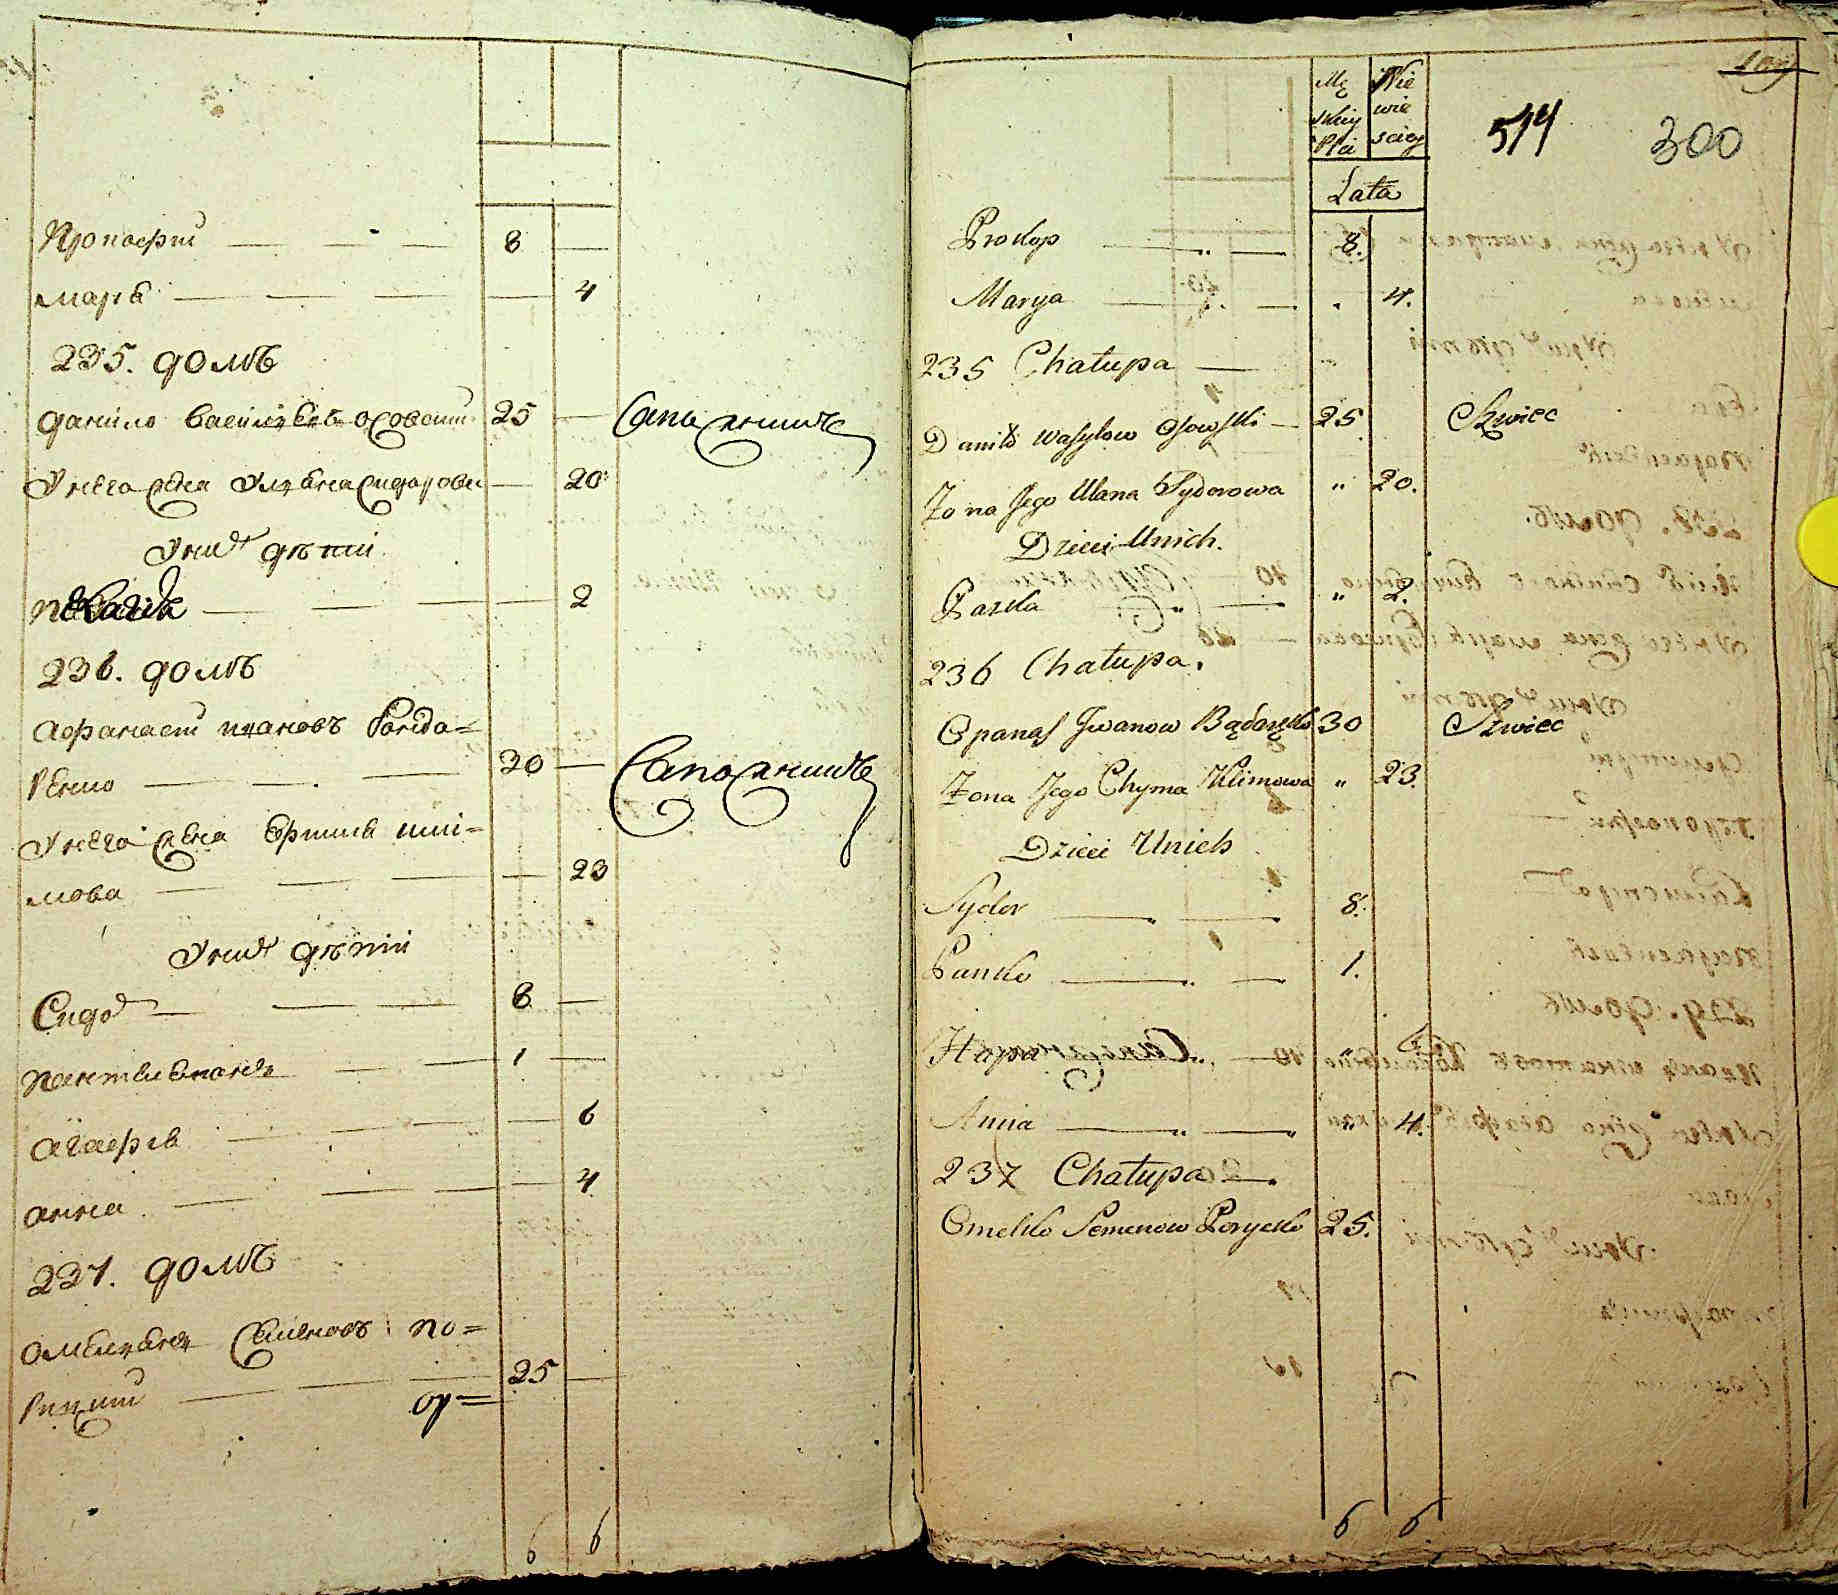 Прокофій 8
Маря 4
235. домъ
Данило Василъевъ Осовски 25 Сапожникъ
У него жена Уляна Сидорова 20
У нихъ дѣти
2
236. домъ
Афанасій Ивановъ Бонда=
ренко 30 Сапожникъ
У него жена Ефимя Кли=
мова 23
У нихъ дѣти
Сидоръ 8
Пантелемонъ 1
Агафія 6
Анна 4
237. домъ
Омелянъ Семеновъ По=
рицкій 25
6 6
Mę Nie
skiey wie
Płci sciey
514 300
Lata
Prokop 8.
Marya 4.
235 Chałupa
Daniło Wasylow Osowski 25 Szwiec
Zona Jego Ulana Sydorowa 20.
Dzieci Unich.
Paraska 2.
236 Chałupa.
Opanas Jwanow Bądaręko 30 Szwiec
Zona Jego Chyma Klimowa 23.
Dzieci Unich
Sydor 8.
Panko 1.
Hapa 6
Anna 4.
237 Chałupa
Omelko Semenow Porycki 25.
6 6